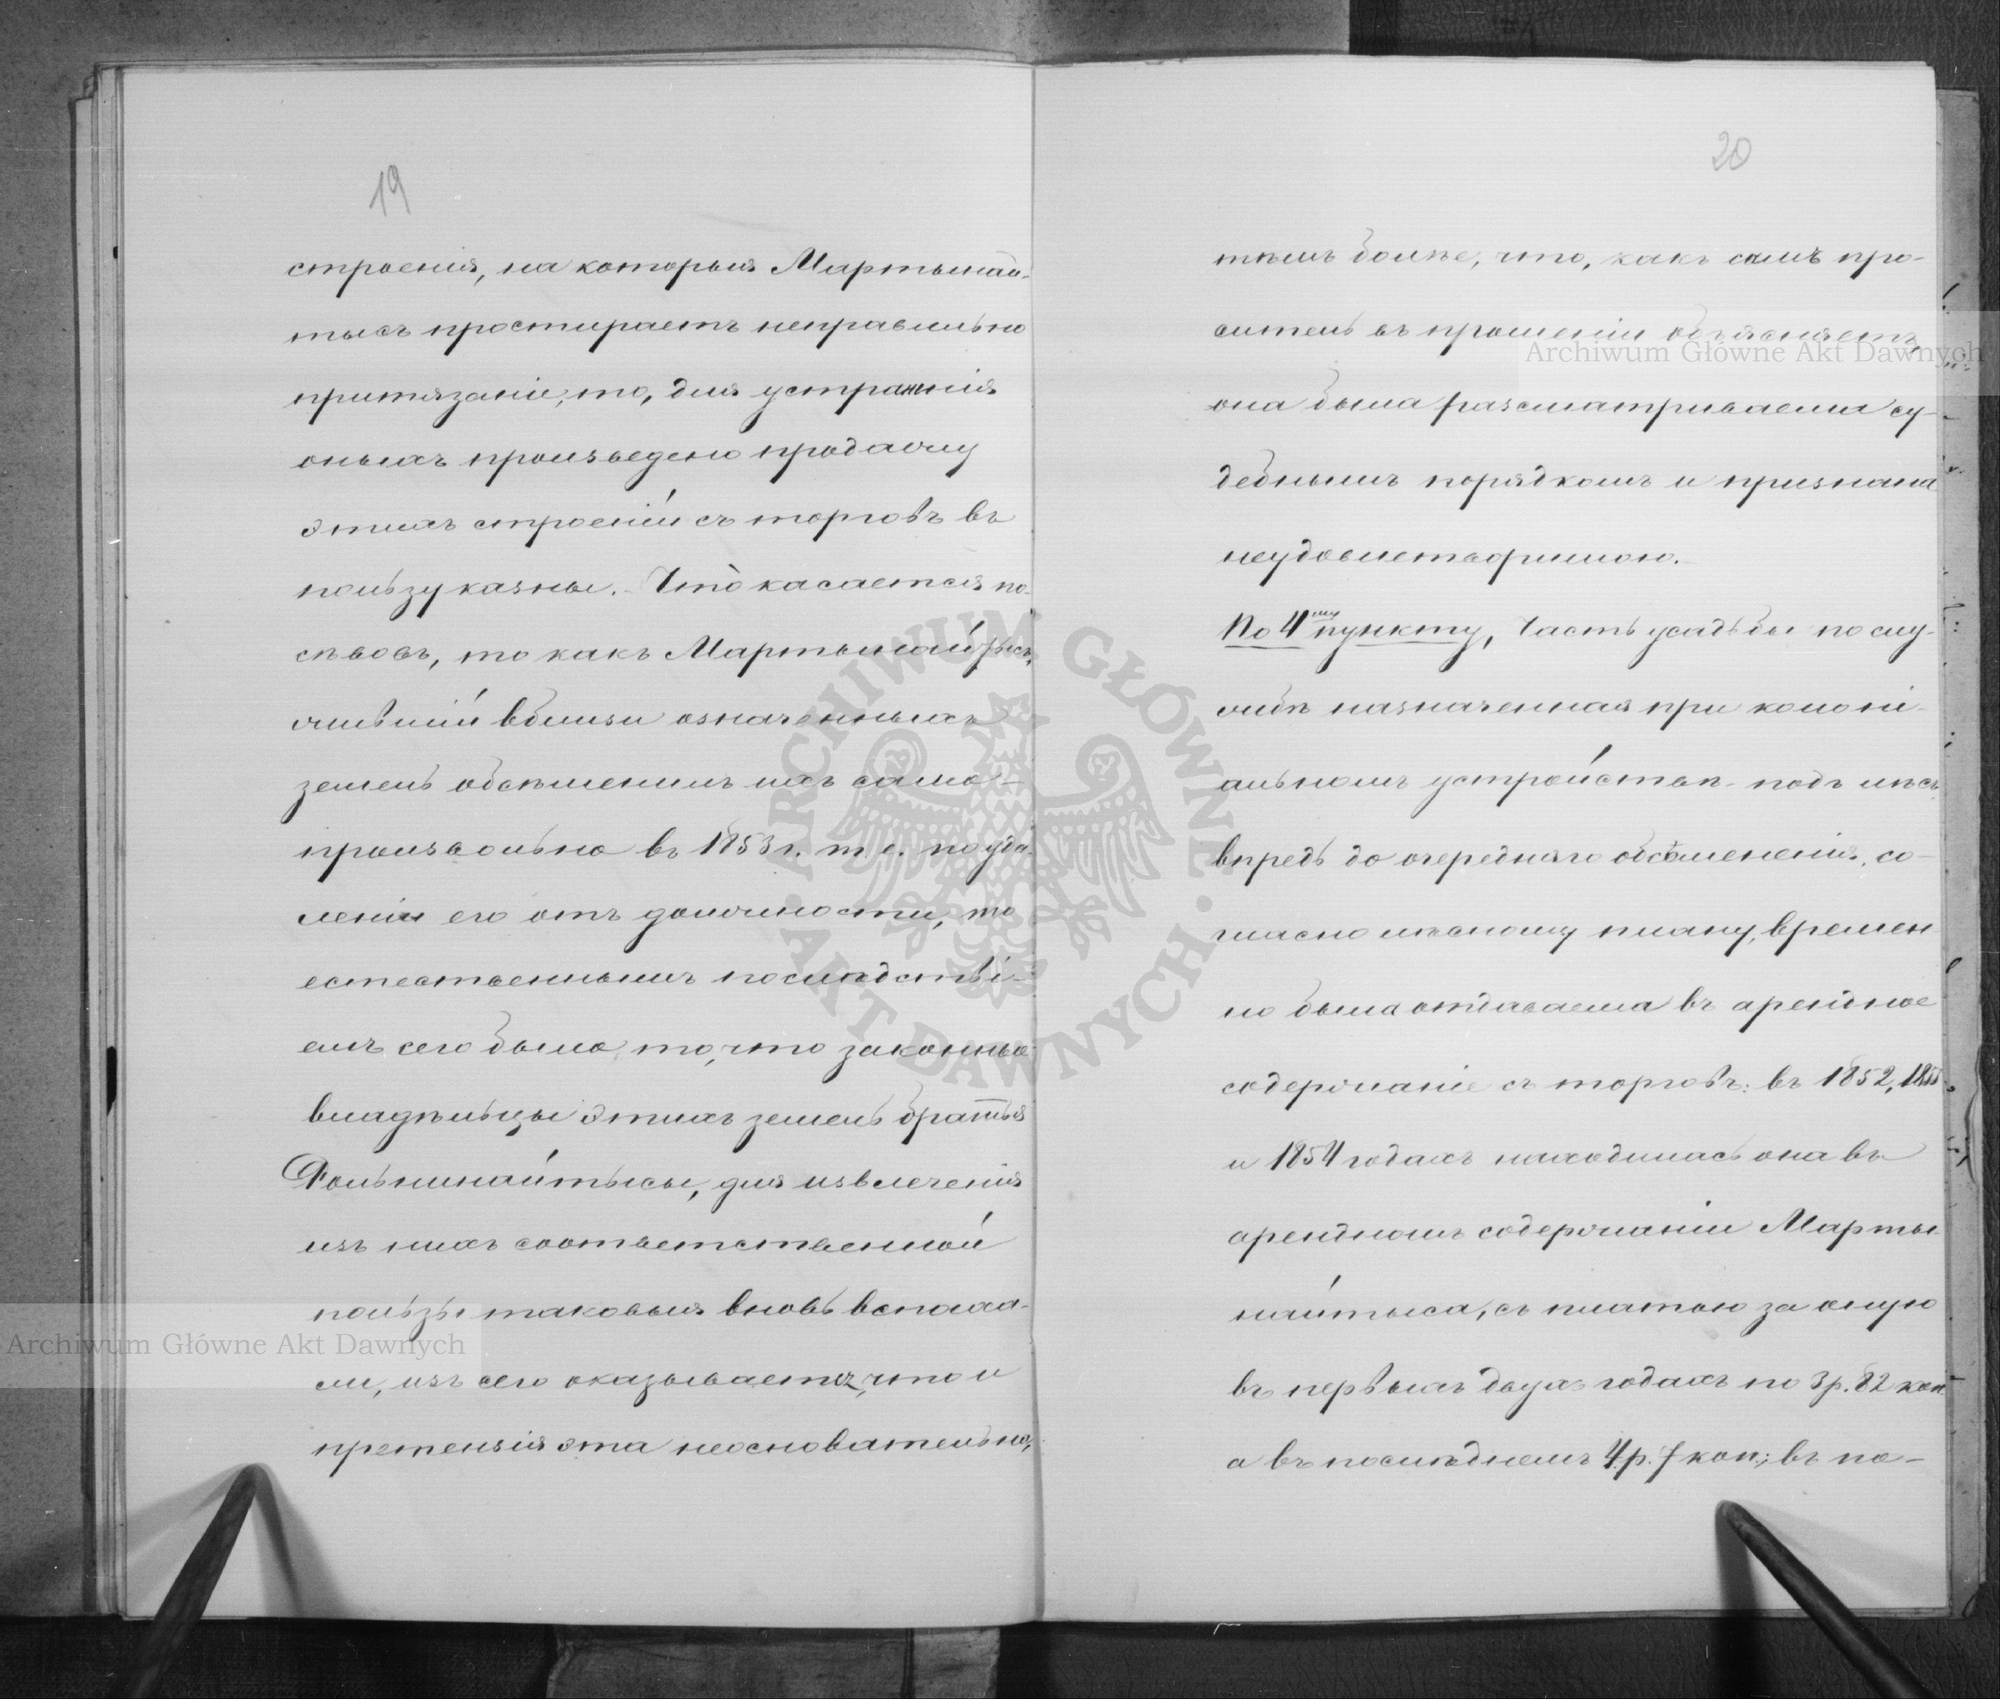 19
строенія, на которыя Мартынай-
тысъ простираетъ неправильно
притязаніе, то, для устраненія
оныхъ произведено продажу
этихъ строеній съ торговъ въ
пользу казны. Что касается по-
сѣвовъ, то какъ Мартынайтысъ,
жившій вблизи означенныхъ
земель обсѣмѣнилъ ихъ само-
произвольно въ 1853 г. т. е. по уда-
леніи его отъ должности, то
естественнымъ послѣдстві-
емъ сего было, то, что законные
владѣльцы этихъ земель братья
Гольнинайтысы, для извлеченія
изъ нихъ соотвѣтственной
пользы таковыя вновь вспаха-
ли, изъ сего оказывается, что и
претензія эта неосновательна,
20
тѣмъ болѣе, что, какъ самъ про-
ситель въ прошеніи объясняетъ,
она была разсматриваема су-
дебнымъ порядкомъ и признана
неудовлетворимою.
По 4му пункту, Часть усадьбы по слу-
жбѣ назначенная при колоні-
альномъ устройствѣ подъ лѣсъ
впредь до очереднаго обсѣмененія, со-
гласно лѣсному плану, времен
но была отдаваема въ арендное
содержаніе съ торговъ: въ 1852, 1853
и 1854 годахъ находилась она въ
арендномъ содержаніи Марты-
найтыса, съ платою за оную
въ первыхъ двухъ годахъ по 3 р. 82 коп.
а въ послѣднемъ 4 р. 7 коп.; въ по-
Archiwum Główne Akt Dawnych
Archiwum Główne Akt Dawnych
ARCHIWUM GŁÓWNE · AKT DAWNYCH ·